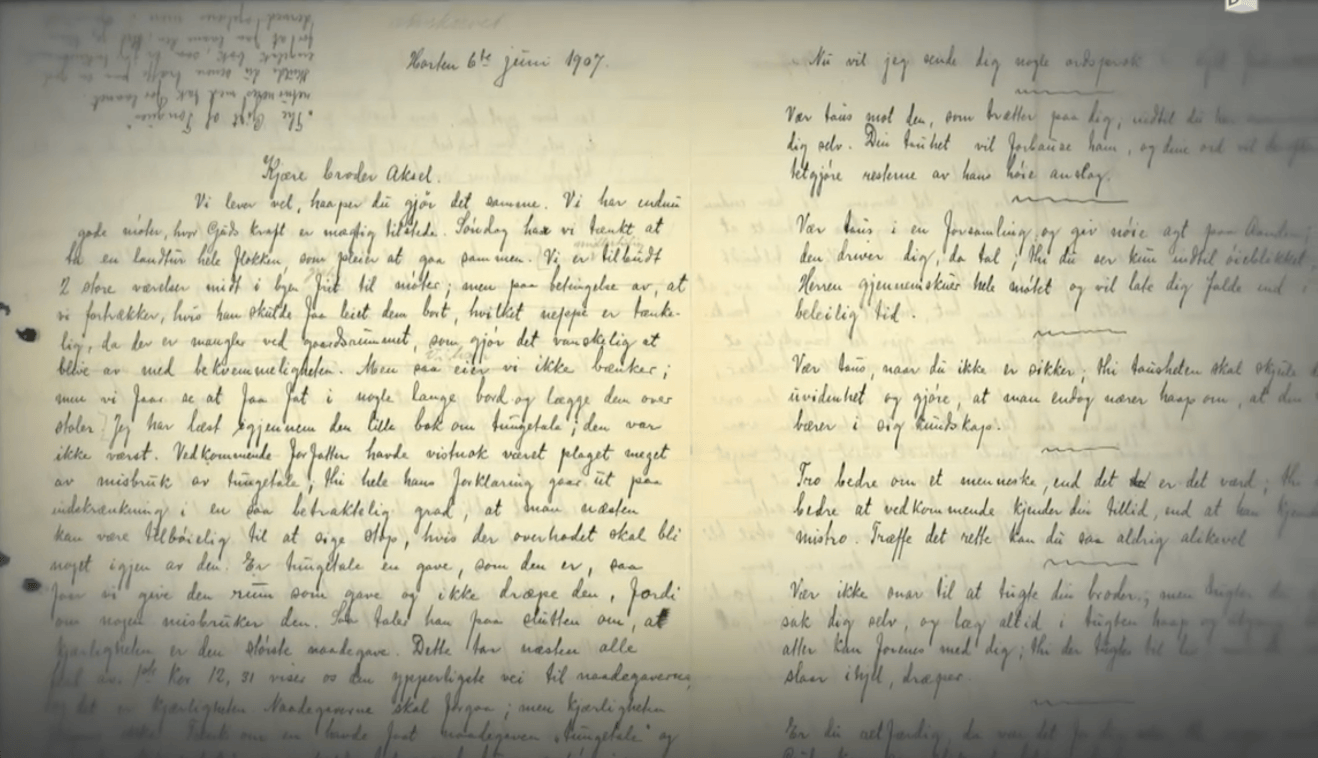 avskrevet
"The Gift of Tongues"
Horten 6te juni 1907.
Kjære broder Aksel.
Vi lever vel, haaper du gjør det samme. Vi har endnu
gode møter, hvor Guds kraft er mægtig tilstede. Søndag har vi tænkt at
ta en landtur hele flokken som pleier at gaa sammen. Vi er tilbudt
2 store værelser midt i byen frit til møter; men paa betingelse av, at
vi fortrækker, hvis han skulde faa leiet dem bort, hvilket neppe er tænke-
lig, da der er mangler ved gaardsrummet, som gjør det vanskelig at
blive av med bekvemmeligheten. Men saa eier vi ikke bænker;
men vi faar se at faa fat i nogle lange bord og lægge dem over
stoler. Jeg har læst igjennem den lille bok om tungetale; den var
ikke værst. Vedkommende forfatter havde vistnok været plaget meget
av misbruk av tungetale; thi hele hans forklaring gaar ut paa
indskrænkning i en saa betraktelig grad, at man næsten
kan være tilbøielig til at sige stop, hvis der overhodet skal bli
noget igjen av den. Er tungetale en gave, som den er, saa
faar vi give den rum som gave og ikke dræpe den, fordi
om nogen misbruker den. Saa taler han paa slutten om, at
kjærligheten er den største naadegave. Dette tar næsten alle
1ste Kor 12, 31 viser os den ypperligste vei til naadegaverne,
og det er kjærligheten Naadegaverne skal forgaa; men kjærligheten
om en havde faat naadegaven "tungetale" og
Nu vil jeg sende dig nogle ordsprok
Vær taus mot den, som trætter paa dig, indtil du har
dig selv. Din taushet vil forbause ham, og dine ord vil
tilgjøre resterne av hans høie anslag.
Vær taus i en forsamling og giv nøie agt paa Aanden;
den driver dig, da tal; thi du ser kun indtil øieblikket,
Herren gjennemskuer hele møtet og vil late dig falde ind i
beleilig tid.
Vær taus, naar du ikke er sikker; thi tausheten skal skjule
uvidenhet og gjøre, at man endog nærer haap om, at den
bærer i sig kundskap.
Tro bedre om et menneske, end det er det værd; thi
bedre at vedkommende kjender din tillid, end at han kjender
mistro. Træffe det rette kan du saa aldrig alikevel
Vær ikke snar til at tugte din broder; men tugter du
sak dig selv, og læg altid i tugten haap og
atter kan forenes med dig; thi der tugtes til liv
slaar ihjel, dræper.
Er du retfærdig, da